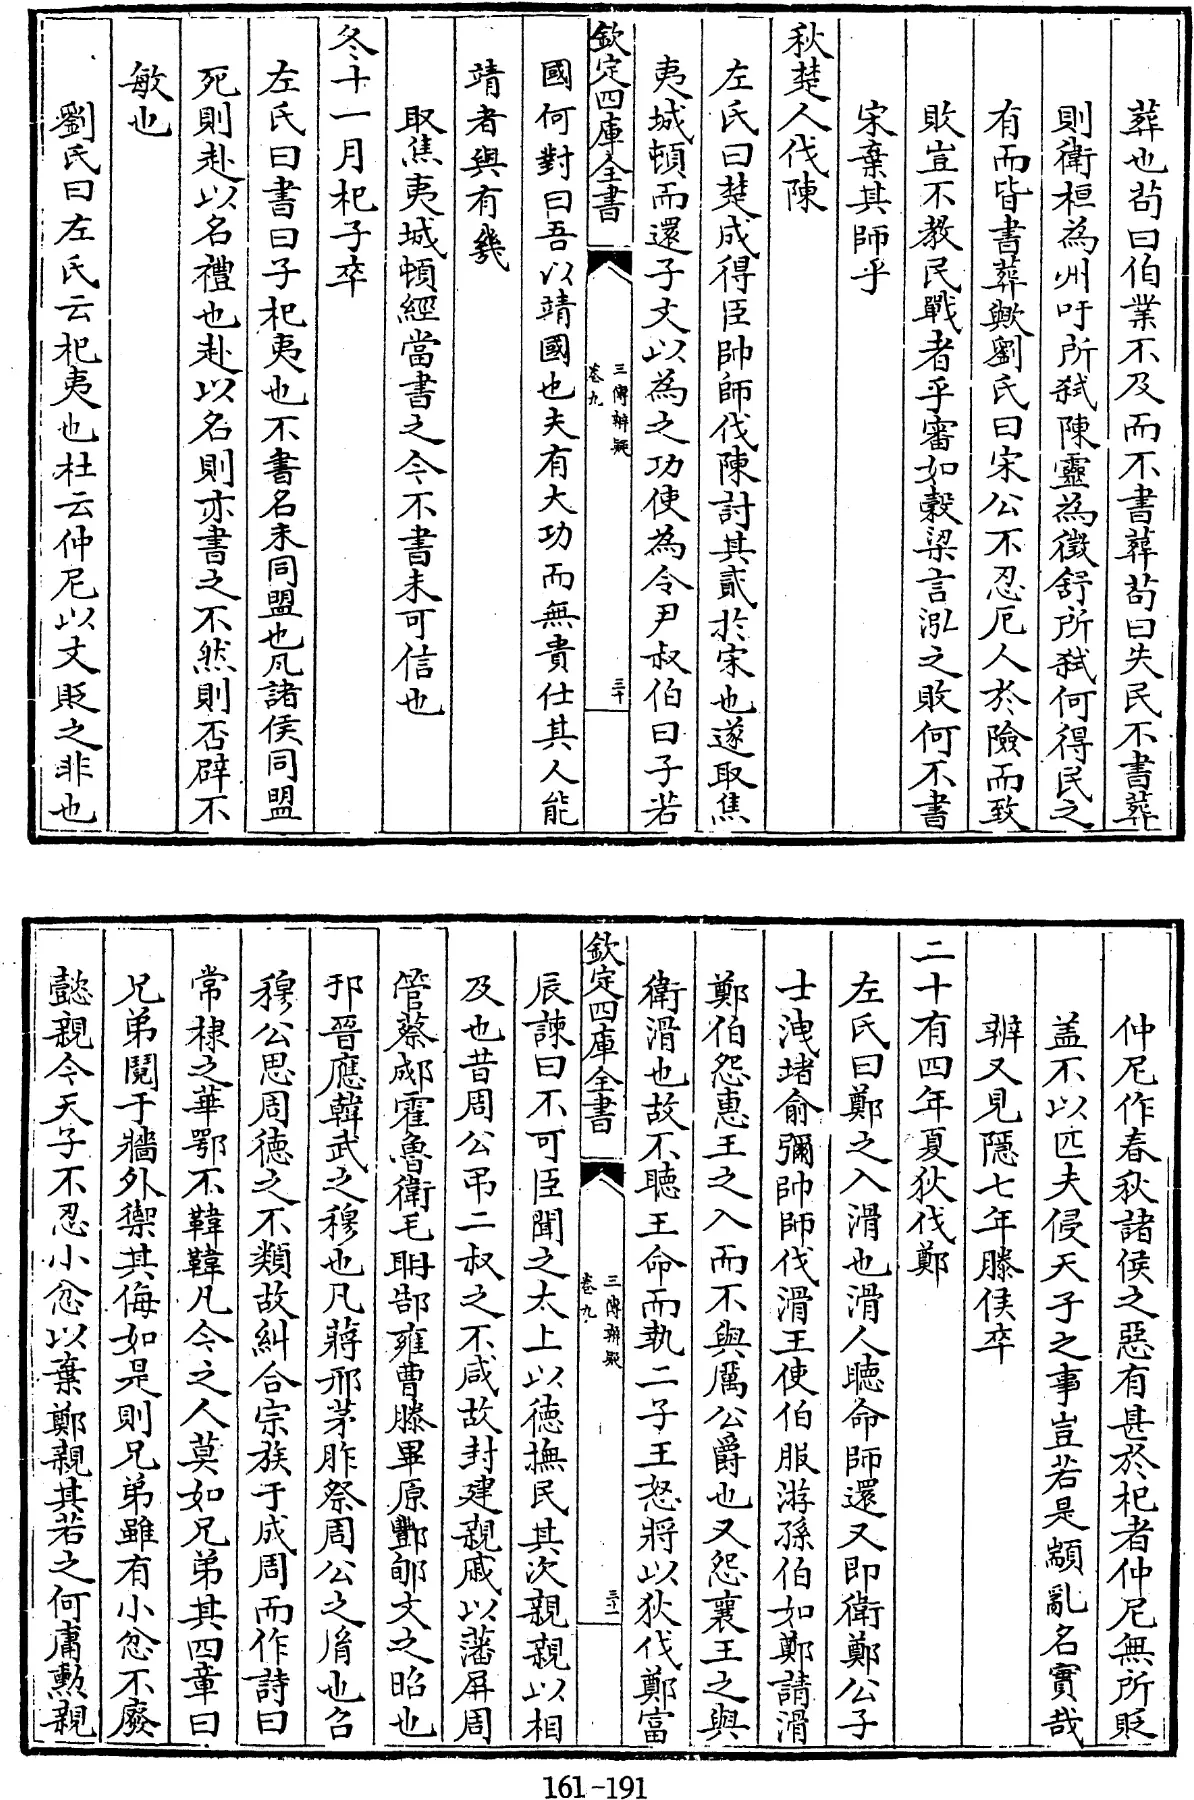 葬也茍曰伯業不及而不書葬茍曰失民不書葬
則衛桓為州吁所弑陳靈為徵舒所弑何得民之
有而皆書葬歟劉氏曰宋公不忍厄人於險而致
敗豈不教民戰者乎審如穀梁言泓之敗何不書
宋棄其師乎
秋楚人伐陳
左氏曰楚成得臣帥師伐陳討其貳於宋也遂取焦
夷城頓而還子文以為之功使為令尹叔伯曰子若
欽定四庫全書
三傳辨疑
卷九
三十
國何對曰吾以靖國也夫有大功而無貴仕其人能
靖者與有幾
取焦夷城頓經當書之今不書未可信也
冬十一月杞子卒
左氏曰書曰子杞夷也不書名未同盟也凡諸侯同盟
死則赴以名禮也赴以名則亦書之不然則否辟不
敏也
劉氏曰左氏云杞夷也杜云仲尼以文貶之非也
仲尼作春秋諸侯之惡有甚於杞者仲尼無所貶
盖不以匹夫侵天子之事豈若是顓亂名實哉
辨又見隱七年滕侯卒
二十有四年夏狄伐鄭
左氏曰鄭之入滑也滑人聽命師還又即衛鄭公子
士洩堵俞彌帥師伐滑王使伯服游孫伯如鄭請滑
鄭伯怨惠王之入而不與厲公爵也又怨襄王之與
衛滑也故不聽王命而執二子王怒將以狄伐鄭富
欽定四庫全書
三傳辨疑
卷九
三十一
辰諫曰不可臣聞之太上以徳撫民其次親親以相
及也昔周公弔二叔之不咸故封建親戚以藩屏周
管蔡郕霍魯衛毛耼郜雍曹滕畢原酆郇文之昭也
邘晉應韓武之穆也凡蔣邢茅胙祭周公之胤也召
穆公思周徳之不類故糾合宗族于成周而作詩曰
常棣之華鄂不韡韡凡今之人莫如兄弟其四章曰
兄弟鬩于牆外禦其侮如是則兄弟雖有小忿不廢
懿親今天子不忍小忿以棄鄭親其若之何庸勲親
161-191